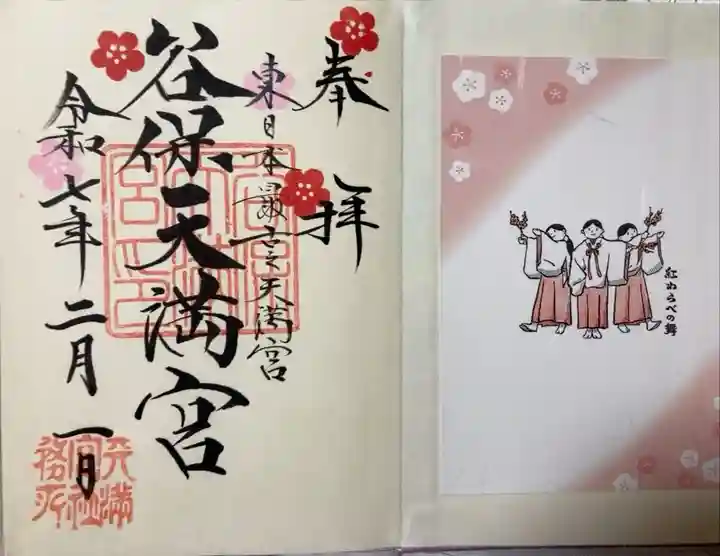 紅わらべの舞
奉拝
東日本最古天満宮
谷保天満宮
令和七年二月一日
天満宮社務所